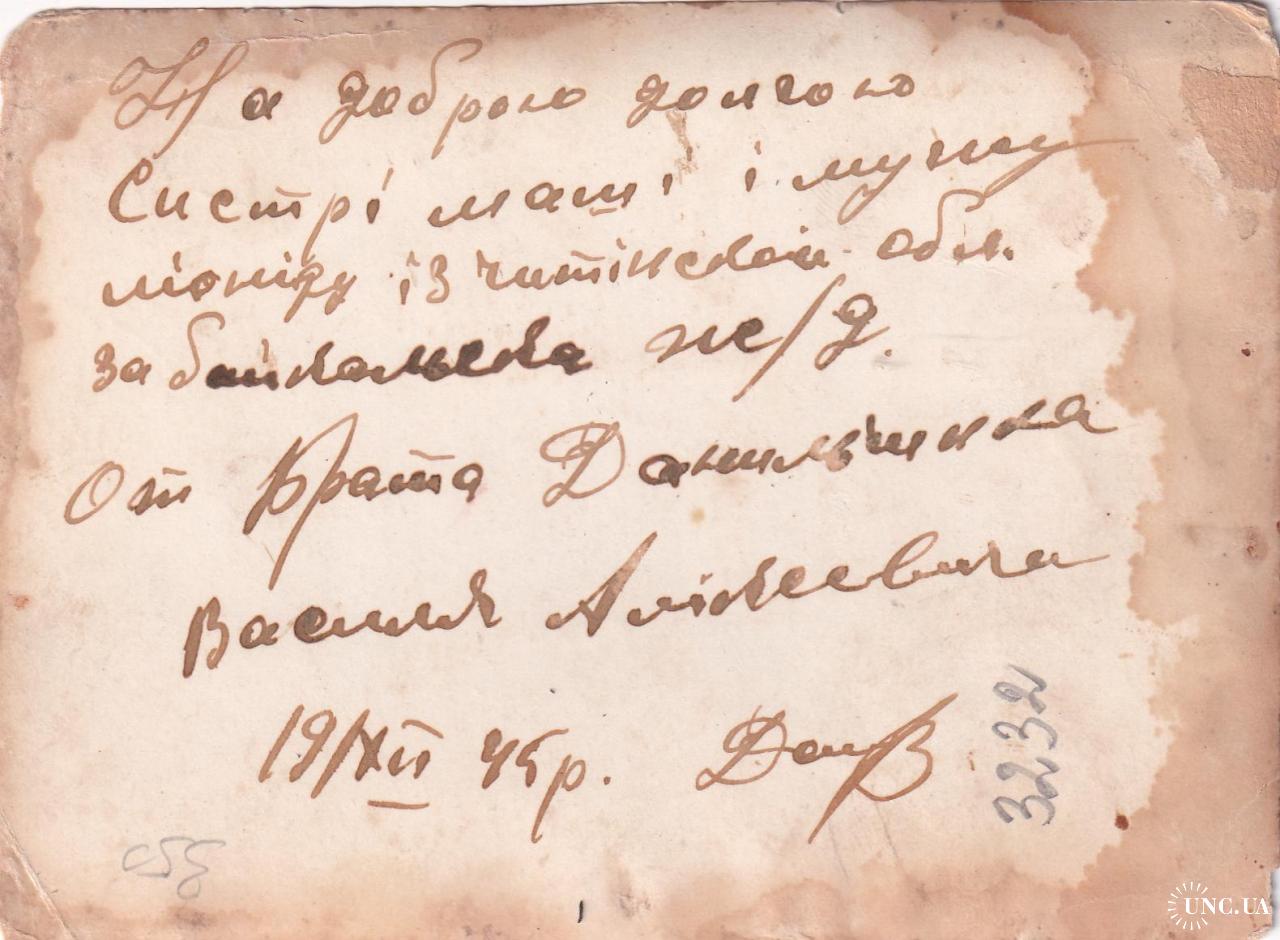 На доброю долгою
Систрі маті і мужу
міоніду із читінской обл.
забайкальска же/д.
От Брата Данильчика
Василя Аліксеевича
19/XII 45р. ДанВ
3232
UNC.UA